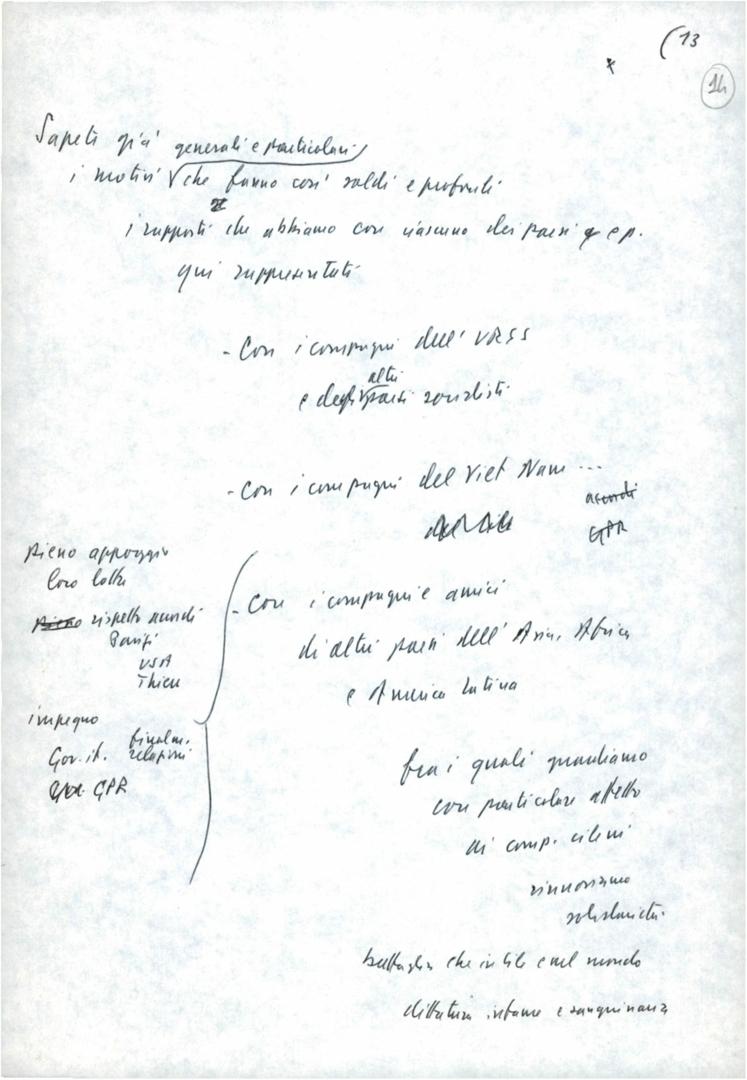 (13
14
Sapete già generali e particolari
i motivi che fanno così saldi e profondi
i rapporti che abbiamo con ciascuno dei paesi e p.
qui rappresentati
- Con i compagni dell' URSS
altri
e degli paesi socialisti
- Con i compagni del Viet Nam ...
accordi
GPR
pieno appoggio
loro lotta
pieno rispetto accordi
Parigi
USA
Thieu
impegno
finalm.
Gov. it. relazioni
GPR
- Con i compagni e amici
di altri paesi dell' Asia, Africa
e America Latina
fra i quali guardiamo
con particolare affetto
ai comp. cileni
rinnoviamo
solidarietà
battaglia che in Cile e nel mondo
dittatura infame e sanguinaria